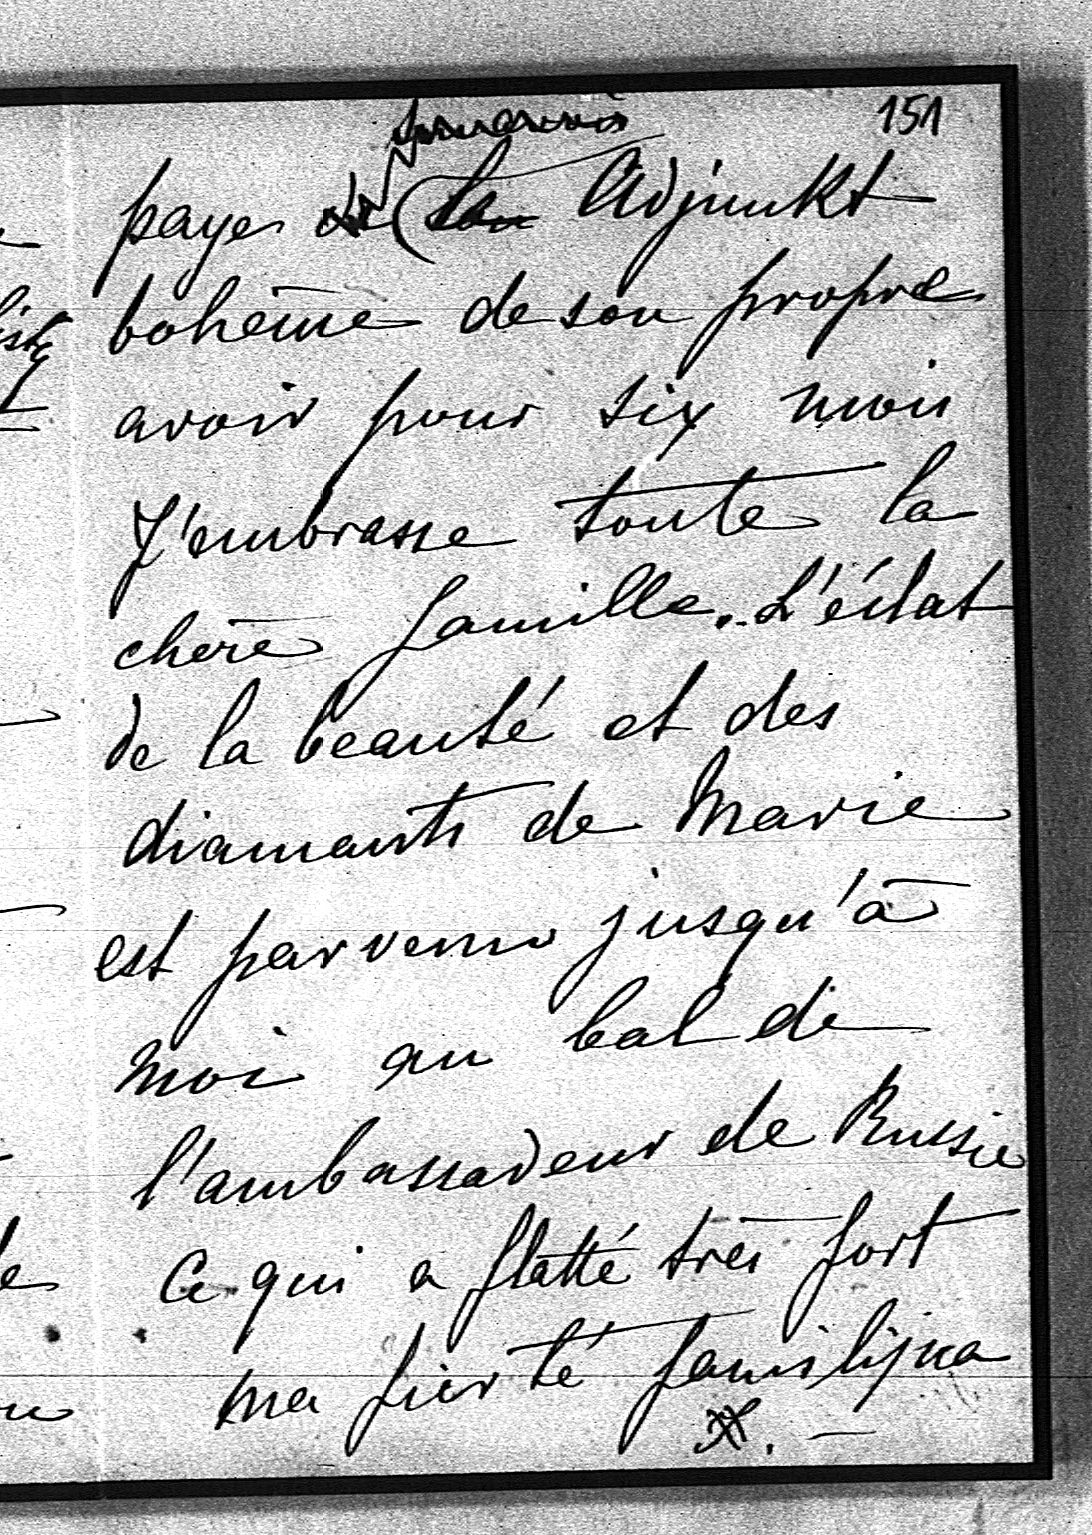 151
payer (son Adjunkt
bohème de son propre
avoir pour six mois
J'embrasse toute la
chère famille. L'éclat
de la beauté et des
diamants de Marie
est parvenu jusqu'à
moi au bal de
l'ambassadeur de Russie
ce qui a flatté très fort
ma fierté familijna